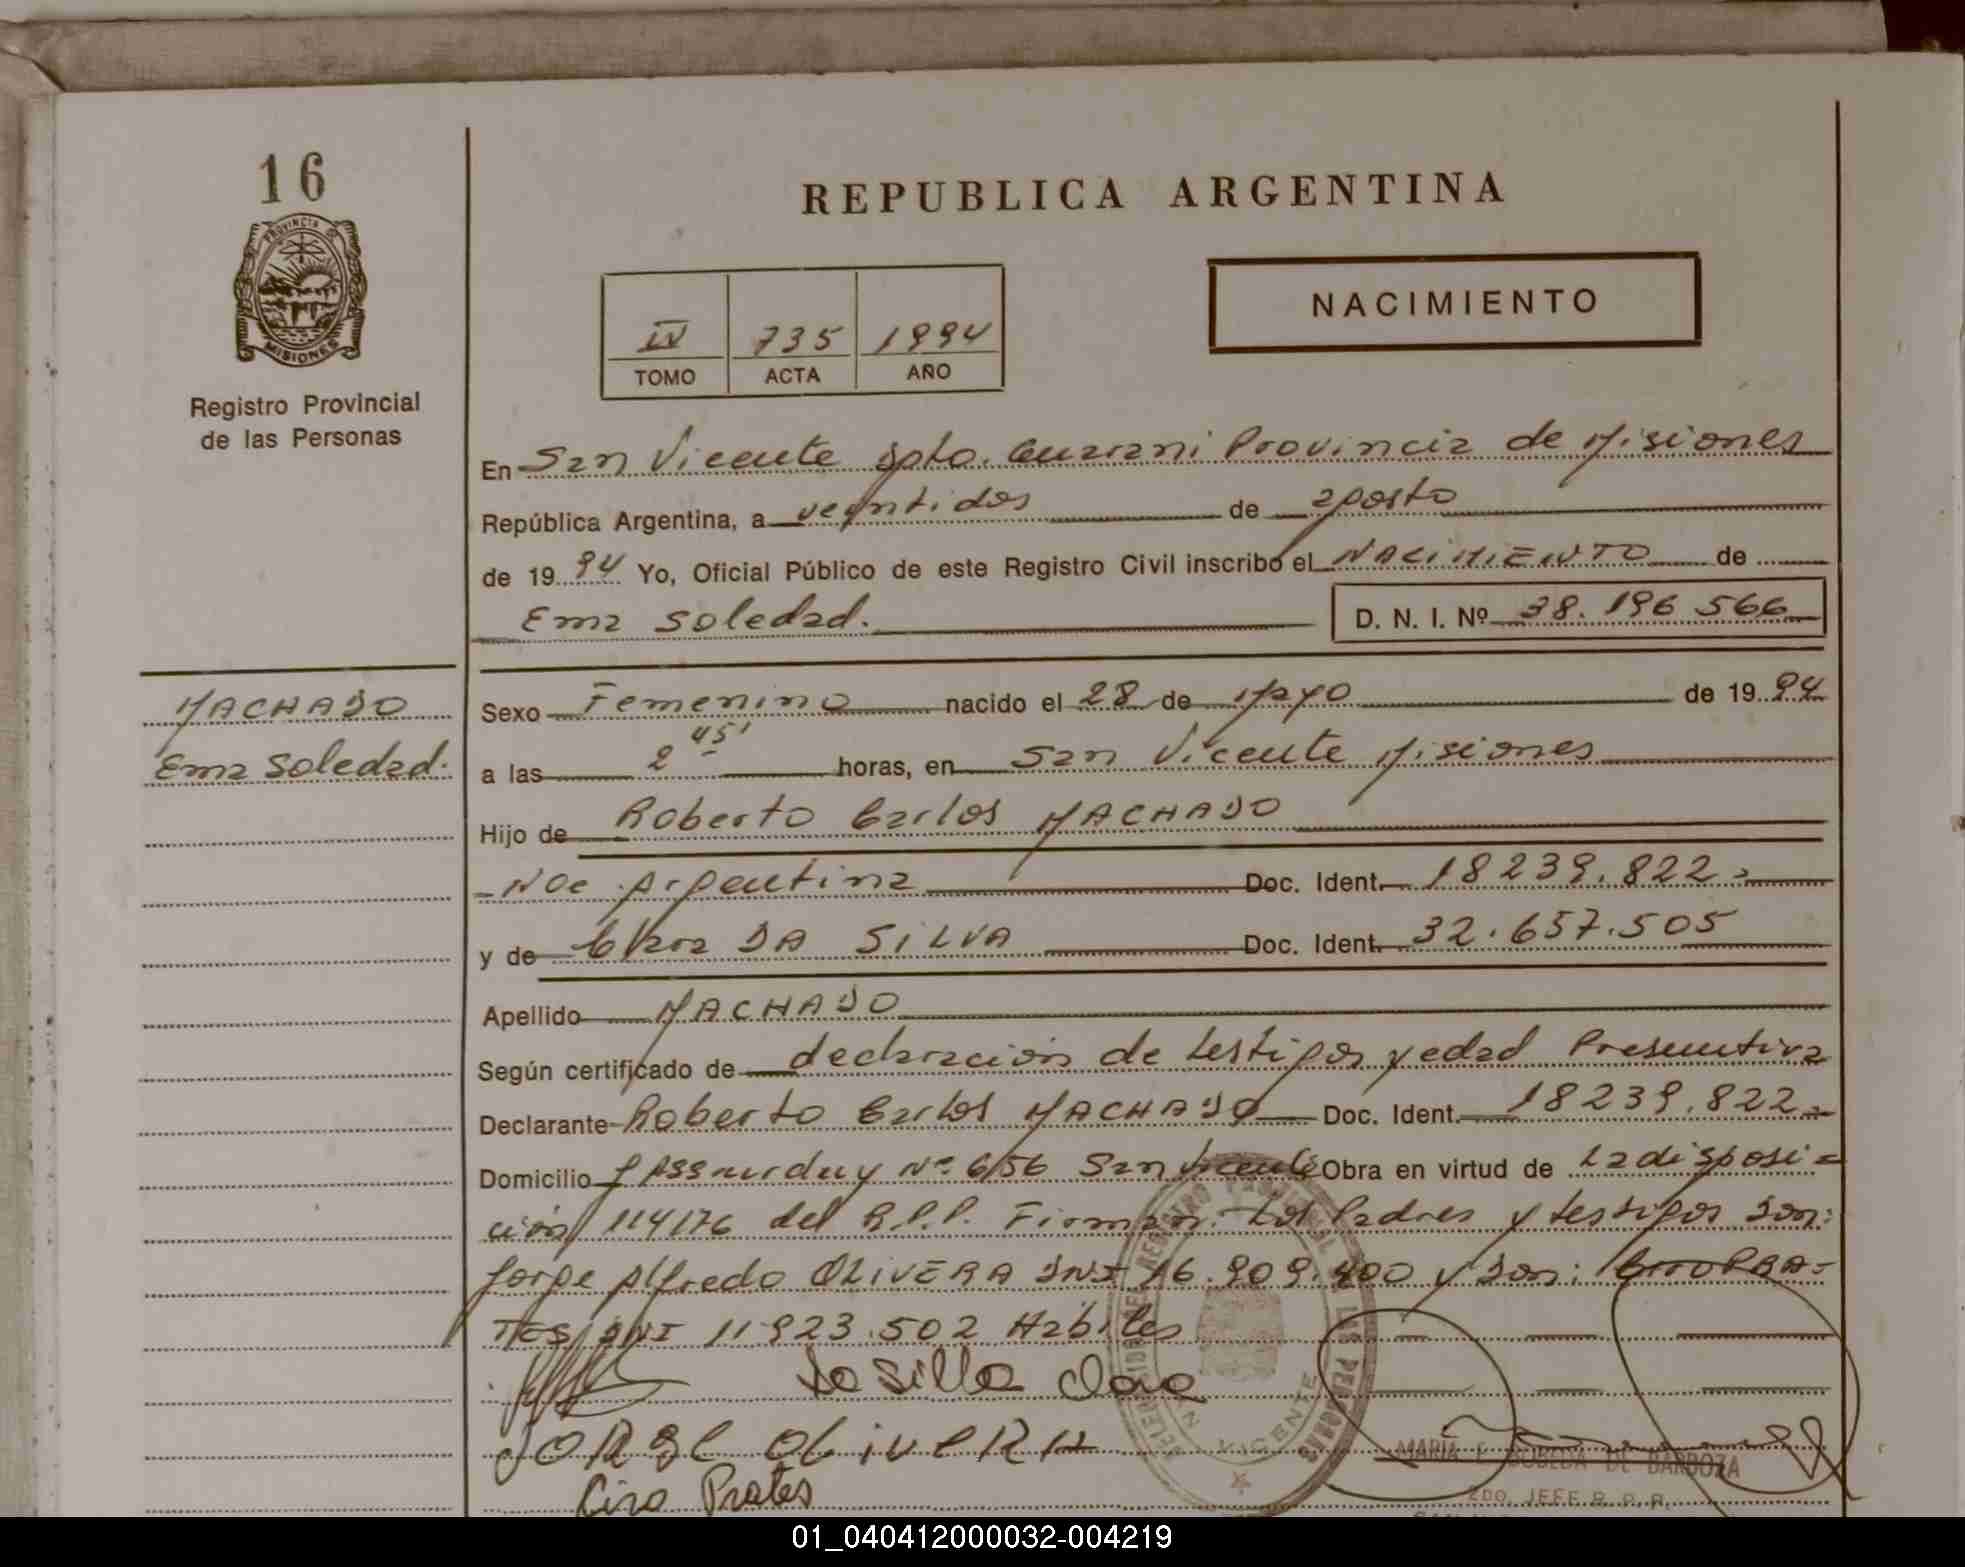 16
PROVINCIA DE
MISIONES
Registro Provincial
de las Personas
REPUBLICA ARGENTINA
NACIMIENTO
IV 735 1994
TOMO ACTA AÑO
En San Vicente Dpto. Guarani Provincia de Misiones
República Argentina, a veintidos de agosto
de 1994 Yo, Oficial Público de este Registro Civil inscribo el NACIMIENTO de
Ema Soledad. D. N. I. Nº 38.196 566
MACHADO
Ema Soledad.
Sexo Femenino nacido el 28 de Mayo de 1994
a las 2 45' horas, en San Vicente Misiones
Hijo de Roberto Carlos MACHADO
Argentina Doc. Ident. 18239.822
y de Clara DA SILVA Doc. Ident. 32.657.505
Apellido MACHADO
Según certificado de declaración de testigos y edad Presuntiva
Declarante Roberto Carlos MACHADO Doc. Ident. 18239.822
Domicilio Nº 656 San Vicente Obra en virtud de La disposi=
ción 114176 del R.P.P. Firman: Los Padres y testigos Son:
Jorge Alfredo OLIVERA DNI 16.909.400 y Don: Ciro PRA-
TES DNI 11923.502 Habiles
Da silla Clara
JORGE OLiveRA
Ciro Prates
VICENTE
MARIA E. BOBEDA DE BARBOZA
2DO. JEFE R. P. P.
01_040412000032-004219